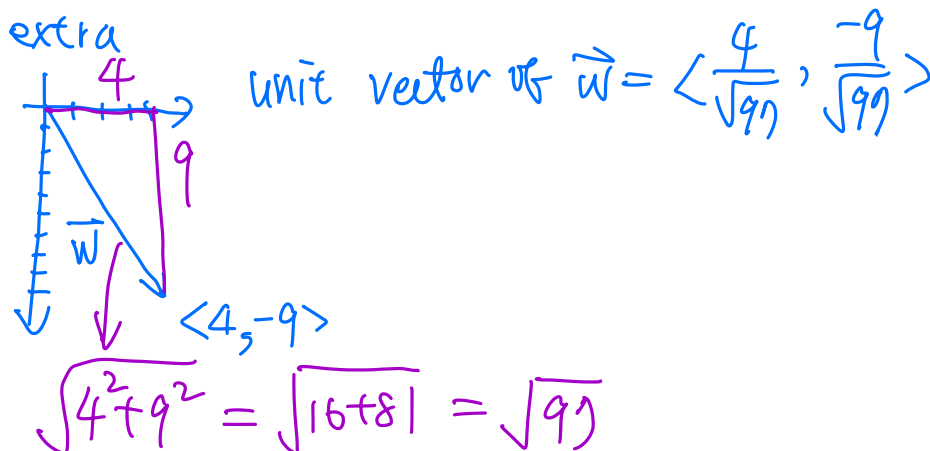 extra
4
unit vector of w⃗ = <4/√97, -9/√97>
9
w⃗
<4, -9>
√(4²+9²) = √(16+81) = √97